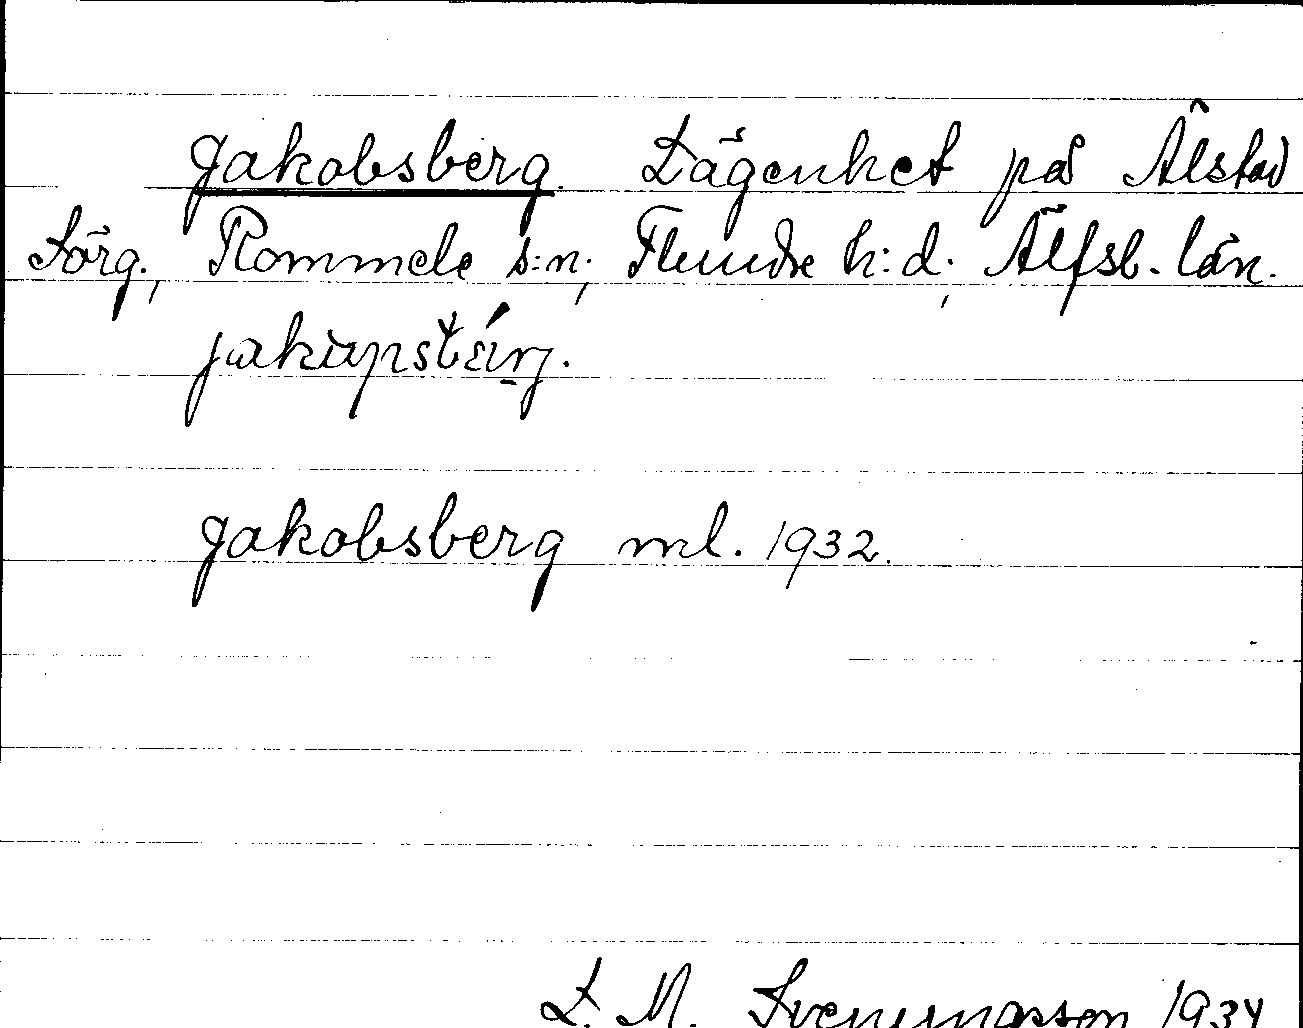 Jakobsberg. Lägenhet på Ålstad
Sörg., Rommele s:n; Flundre h:d; Älfsb. län.
Jakobsberg ml. 1932.
L. M. Svenungsson 1934